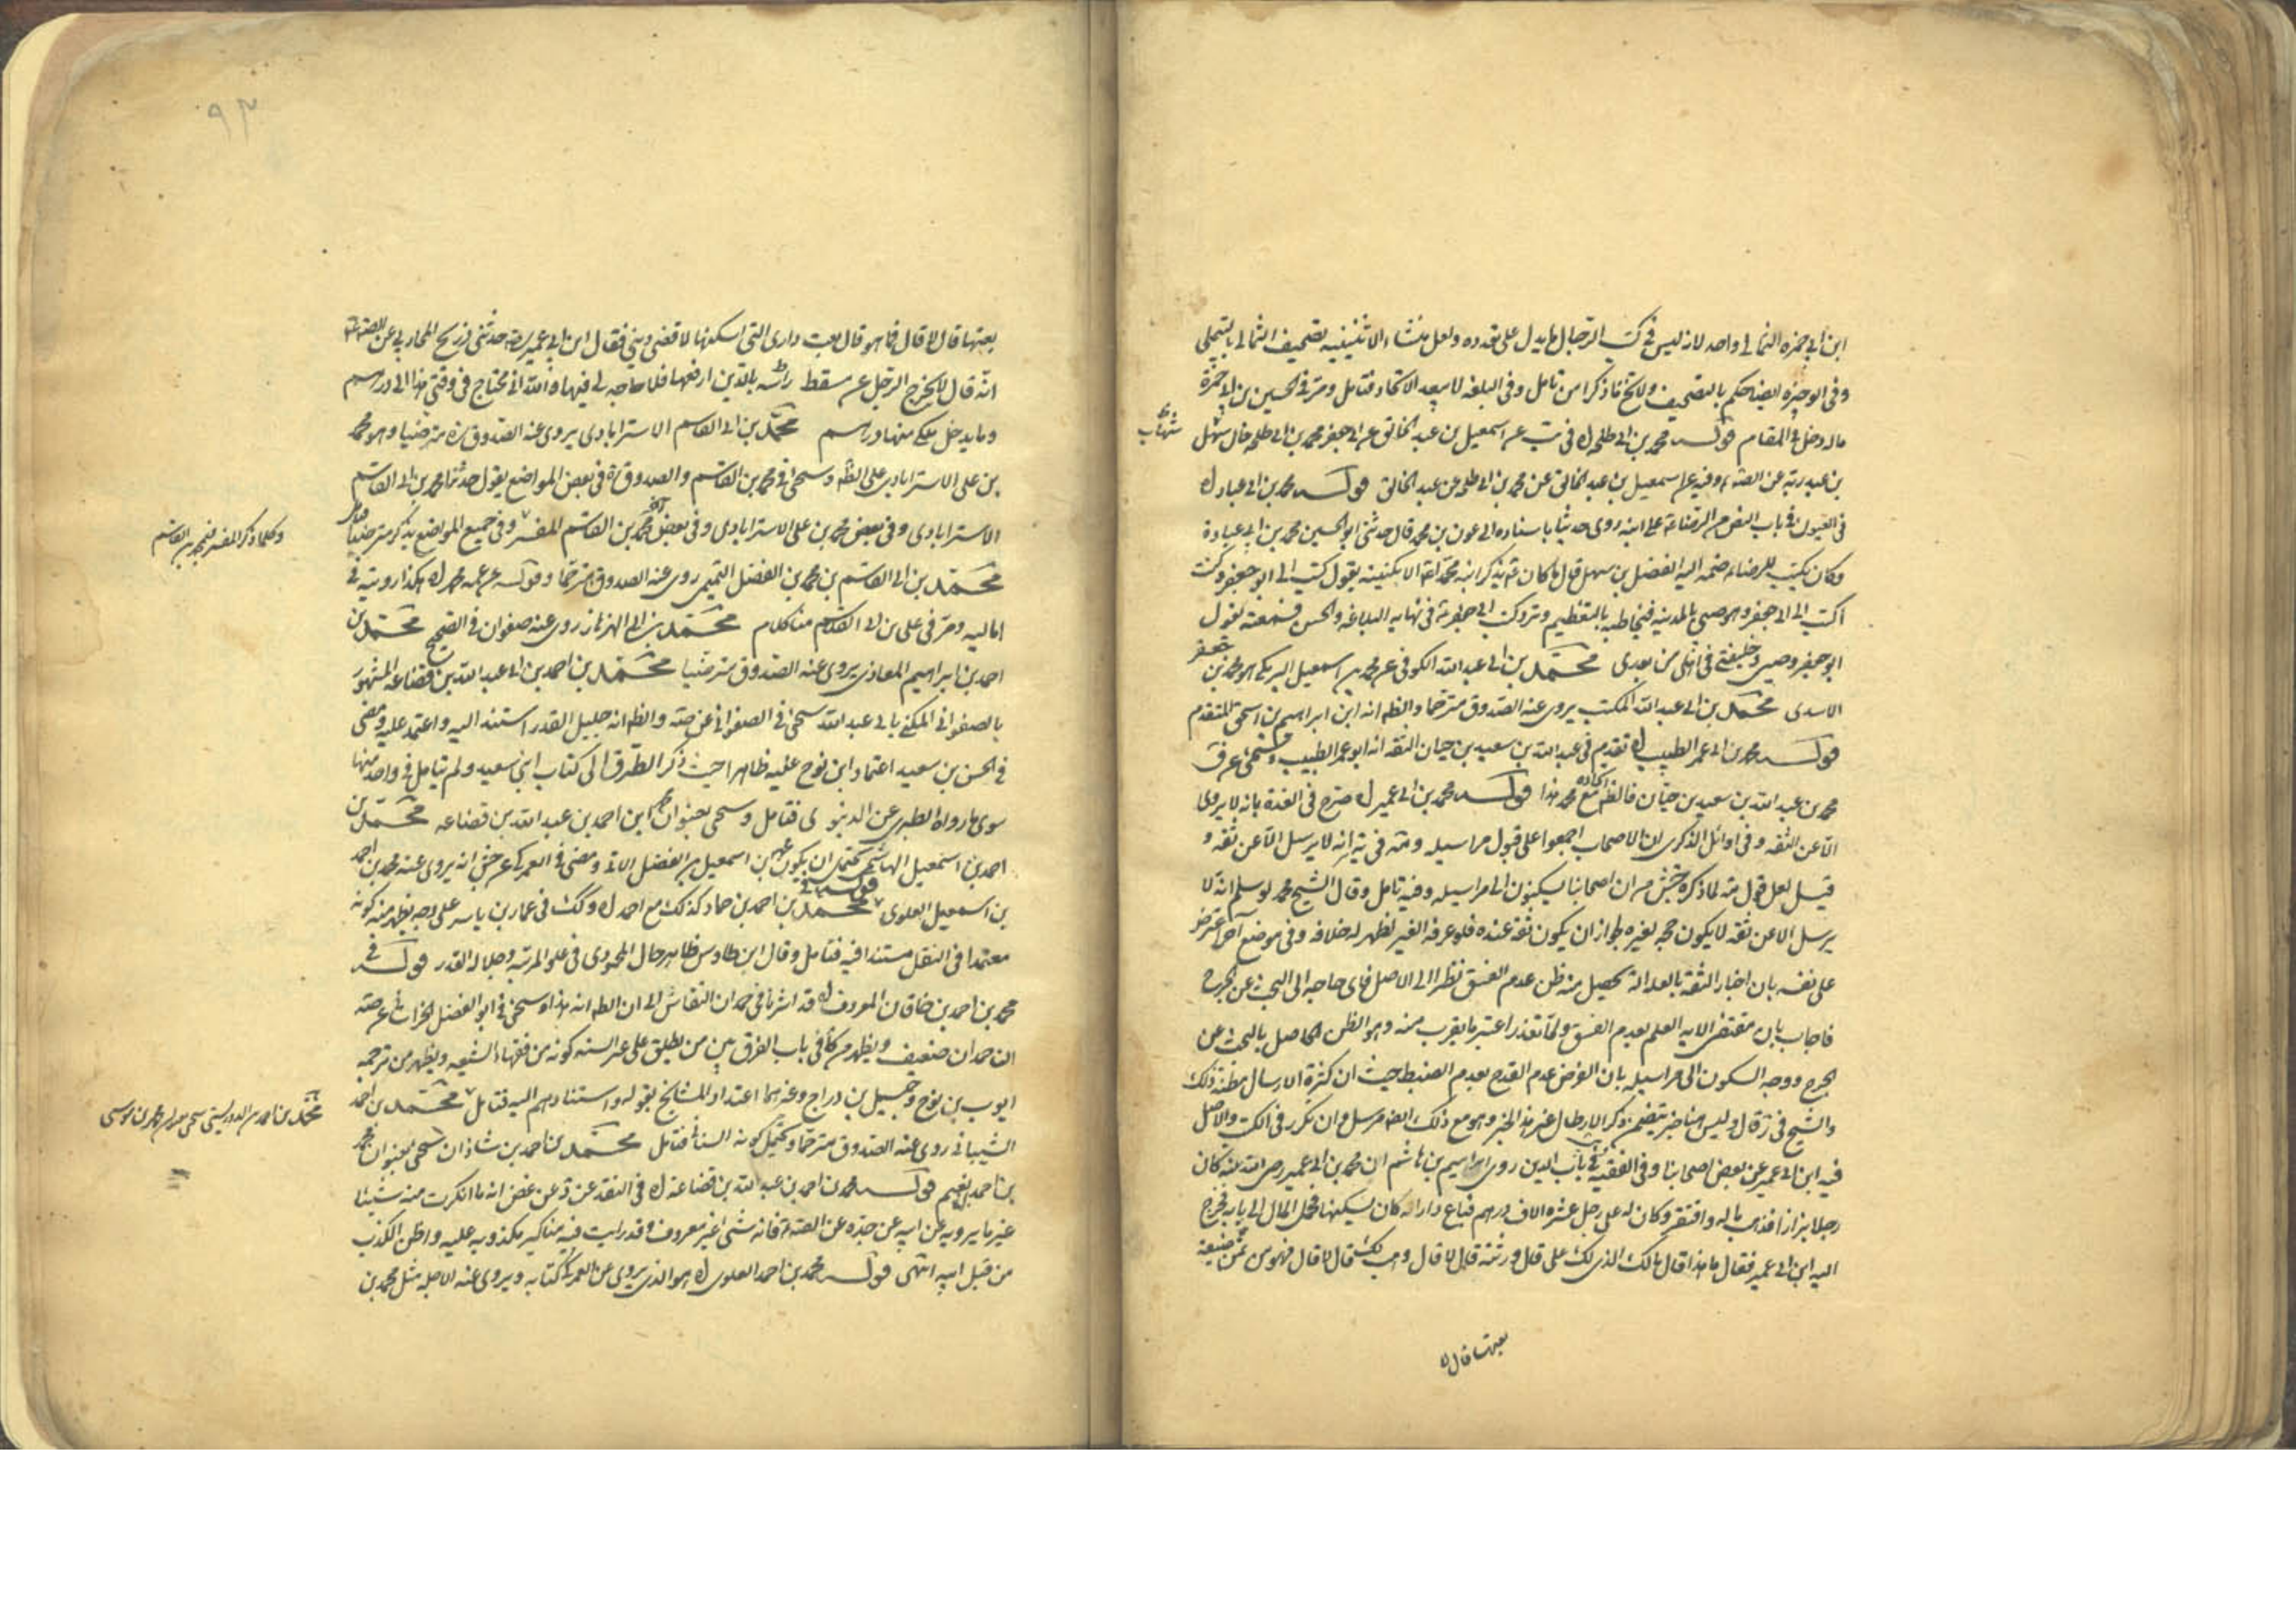 ابن ابي حمزة الثمالي واحد لانه ليس في كتب الرجال ما يدل على تعدده ولعل منشاء الاثنينيه تصحيف الثمالي بالتيملي
وفي الوجيزه ايضا حكم بالتصحيف ولا يخ ما ذكرا من تامل وفي البلغه لا يبعد الاتحاد فتامل ومر في الحسين بن ابي حمزة
ماله دخل في المقام قوله محمد بن ابي طلحه اه في عن اسمعيل بن عبد الخالق عن ابي جعفر محمد بن ابي طلحه خال سهل
بن عبد ربه عن الصه وفيه عن اسمعيل بن عبد الخالق عن محمد بن ابي طلحه عن عبد الخالق قوله محمد بن ابي عباد اه
في العيون في باب النص من الرضا عه على ابنه روى حدثنا باسناده الى عون بن محمد قال حدثني ابو الحسين محمد بن ابي عبادة
وكان يكتب للرضاء ضمه اليه الفضل بن سهل قال ما كان عه يذكر ابنه محمدا عه الا بكنيته يقول كتب الي ابو جعفر وكنت
اكتب الى ابي جعفر وهو صبي بالمدينه فيخاطبه بالتعظيم وترد كتب ابي جعفر عه في نهايه البلاغه والحسن فسمعته يقول
ابو جعفر وصيي وخليفتي في اهلي من بعدي محمد بن ابي عبد الله الكوفي عن محمد بن اسمعيل البرمكي هو محمد بن جعفر
الاسدى محمد بن ابي عبد الله المكتب يروى عنه الصدوق مترحما والظ انه ابن ابراهيم بن اسحق المتقدم
قوله محمد بن ابي عمر الطبيب اه تقدم في عبد الله بن سعيد بن حيان الثقه انه ابو عمر الطبيب
محمد بن عبد الله بن سعيد بن حيان فالظ اتحاده مع محمد هذا قوله محمد بن ابي عمير اه صرح في العدة بانه لا يروى
الا عن الثقه وفي اوائل الذكرى ان الاصحاب اجمعوا على قبول مراسيله ومنه في انه لا يرسل الا عن ثقه و
قيل لعل قول لما ذكره جش من ان اصحابنا يسكنون الى مراسيله وفيه تامل وقال الشيخ محمد لو سلم انه لا
يرسل الا عن ثقه لا يكون حجه لغيره لجواز ان يكون ثقة عنده فلو عرفه الغير لظهر له خلافه وفي موضع آخر اعترض
على نفسه بان اخبار الثقه بالعداله يحصل منه ظن عدم الفسق نظرا الى الاصل فاى حاجه الى البحث عن الجرح
فاجاب بان مقتضى الايه العلم بعدم الفسق ولما تعذر اعتبر ما يقرب منه وهو الظن الحاصل بالبحث عن
الجرح ووجه السكون الى مراسيله بان الغرض عدم القدح بعدم الضبط حيث ان كثرة الارسال مظنة ذلك
والشيخ في زقال وليس هنا خبر يتضمن ذكر الارطال غير هذا الخبر وهو مع ذلك ايضا مرسل وان تكرر في الكتب والاصل
فيه ابن ابي عمير عن بعض اصحابنا وفي الفقيه في باب الدين روى ابراهيم بن هاشم ان محمد بن ابي عمير رضي الله عنه كان
رجلا بزازا فذهب ماله وافتقر وكان له على رجل عشره الاف درهم فباع دارا له كان يسكنها وحمل المال الى بابه فخرج
اليه ابن ابي عمير فقال ما هذا قال مالك الذي لك على قال ورثته قال لا قال وهب لك قال لا قال فهو من ثمن ضيعة
بعتها قال لا
٩٣
بعتها قال لا قال فما هو قال بعت داري التي اسكنها لاقضي ديني فقال ابن ابي عمير ره حدثني ذريح المحاربي عن الصه عه
انه قال لا يخرج الرجل عن مسقط راسه بالدين ارفعها فلا حاجه لي فيها والله اني محتاج في وقتي هذا الى درهم
وما يدخل ملكي منها درهم محمد بن ابي القاسم الاسترابادي يروي عنه الصدوق ره مترضيا وهو محمد
بن علي الاسترابادي على الظ وسيجئ في محمد بن القاسم والصدوق ره في بعض المواضع يقول حدثنا محمد بن ابي القاسم
الاسترابادي وفي بعض محمد بن علي الاسترابادي وفي بعض آخر محمد بن القاسم المفسر وفي جميع المواضع يذكر مترضيا
وكلما ذكر المفسر فمحمد بن القاسم
محمد بن ابي القاسم بن محمد بن الفضل التميمي روى عنه الصدوق مترحما وقوله عن عمه محمد اه هكذا رويته في
اماليه ومر في علي بن ابي القاسم منا كلام محمد بن ابي الهزهاز روى عنه صفوان في الصحيح محمد بن
احمد بن ابراهيم المعاذي يروي عنه الصدوق مترضيا محمد بن احمد بن ابي عبد الله بن قضاعه المشهور
بالصفواني المكنى بابي عبد الله سيجئ في الصفواني عن صه والظ انه جليل القدر استند اليه واعتمد عليه ومضى
في الحسن بن سعيد اعتماد ابن نوح عليه ظاهرا حيث ذكر الطرق الى كتاب ابني سعيد ولم يتامل في واحد منها
سوى ما رواه الطبري عن الدينوري فتامل وسيجئ بعنوان محمد ابن احمد بن عبد الله بن قضاعه محمد بن
احمد بن اسمعيل الهاشمي يحتمل ان يكون بن اسمعيل بن الفضل الاتي ومضى في العمركي عن جش انه يروي عنه محمد بن احمد
بن اسمعيل العلوي قوله في محمد بن احمد بن حماد كذلك مع احمد اه وكك في عمار بن ياسر على وجه يظهر منه كونه
معتمدا في النقل مستندا فيه فتامل وقال ابن طاوس ظاهر حال المحمودي في علو المرتبه وجلاله القدر قوله في
محمد بن احمد بن خاقان المعروف اه قد اشرنا في حمدان النقاش الى ان الظ انه هذا وسيجئ في ابو الفضل الخراساني عن صه
ان حمدان ضعيف ويظهر من كافي باب الفرق بين من يطلق على غير السنه كونه من فقهاء الشيعه ويظهر من ترجمه
ايوب بن نوح وجميل بن دراج وغيرهما اعتداد المشايخ بقوله واستنادهم اليه فتامل محمد بن احمد
الشيباني روى عنه الصدوق مترحما ويحتمل كونه السناني فتامل محمد بن احمد بن شاذان سيجئ بعنوان محمد
بن احمد بن نعيم قوله محمد بن احمد بن عبد الله بن قضاعه اه في النقد عن غض انه ما انكرت منه شيئا
غير ما يرويه عن ابيه عن جده عن الصه عه فانه شئ غير معروف وقد رايت فيه مناكير مكذوبه عليه واظن الكذب
من قبل ابيه انتهى قوله محمد بن احمد العلوي اه هو الذي يروي عن العمركي كتابه ويروي عنه الاجله مثل محمد بن